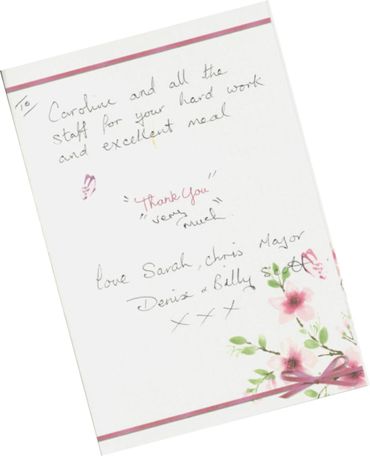 To
Caroline and all the
staff for your hard work
and excellent meal
"Thank You"
"very
much".
love Sarah, chris Mayor
Denise & Billy Scott
X X X